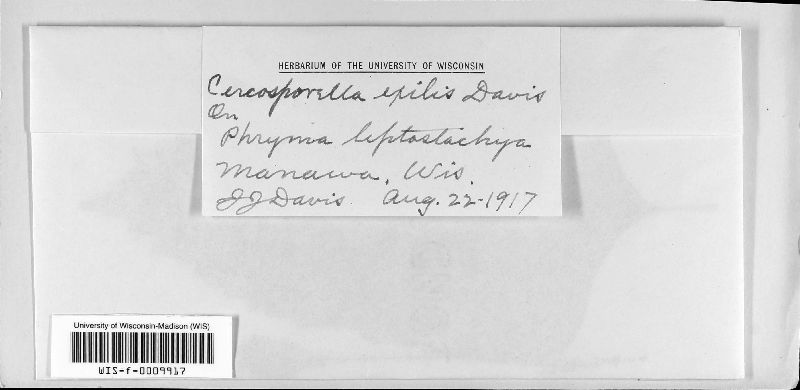 HERBARIUM OF THE UNIVERSITY OF WISCONSIN
Cercosporella exilis Davis
On
Phryma leptostachya
Manawa, Wis.
JJDavis. Aug. 22-1917
University of Wisconsin-Madison (WIS)
WIS-f-0009967